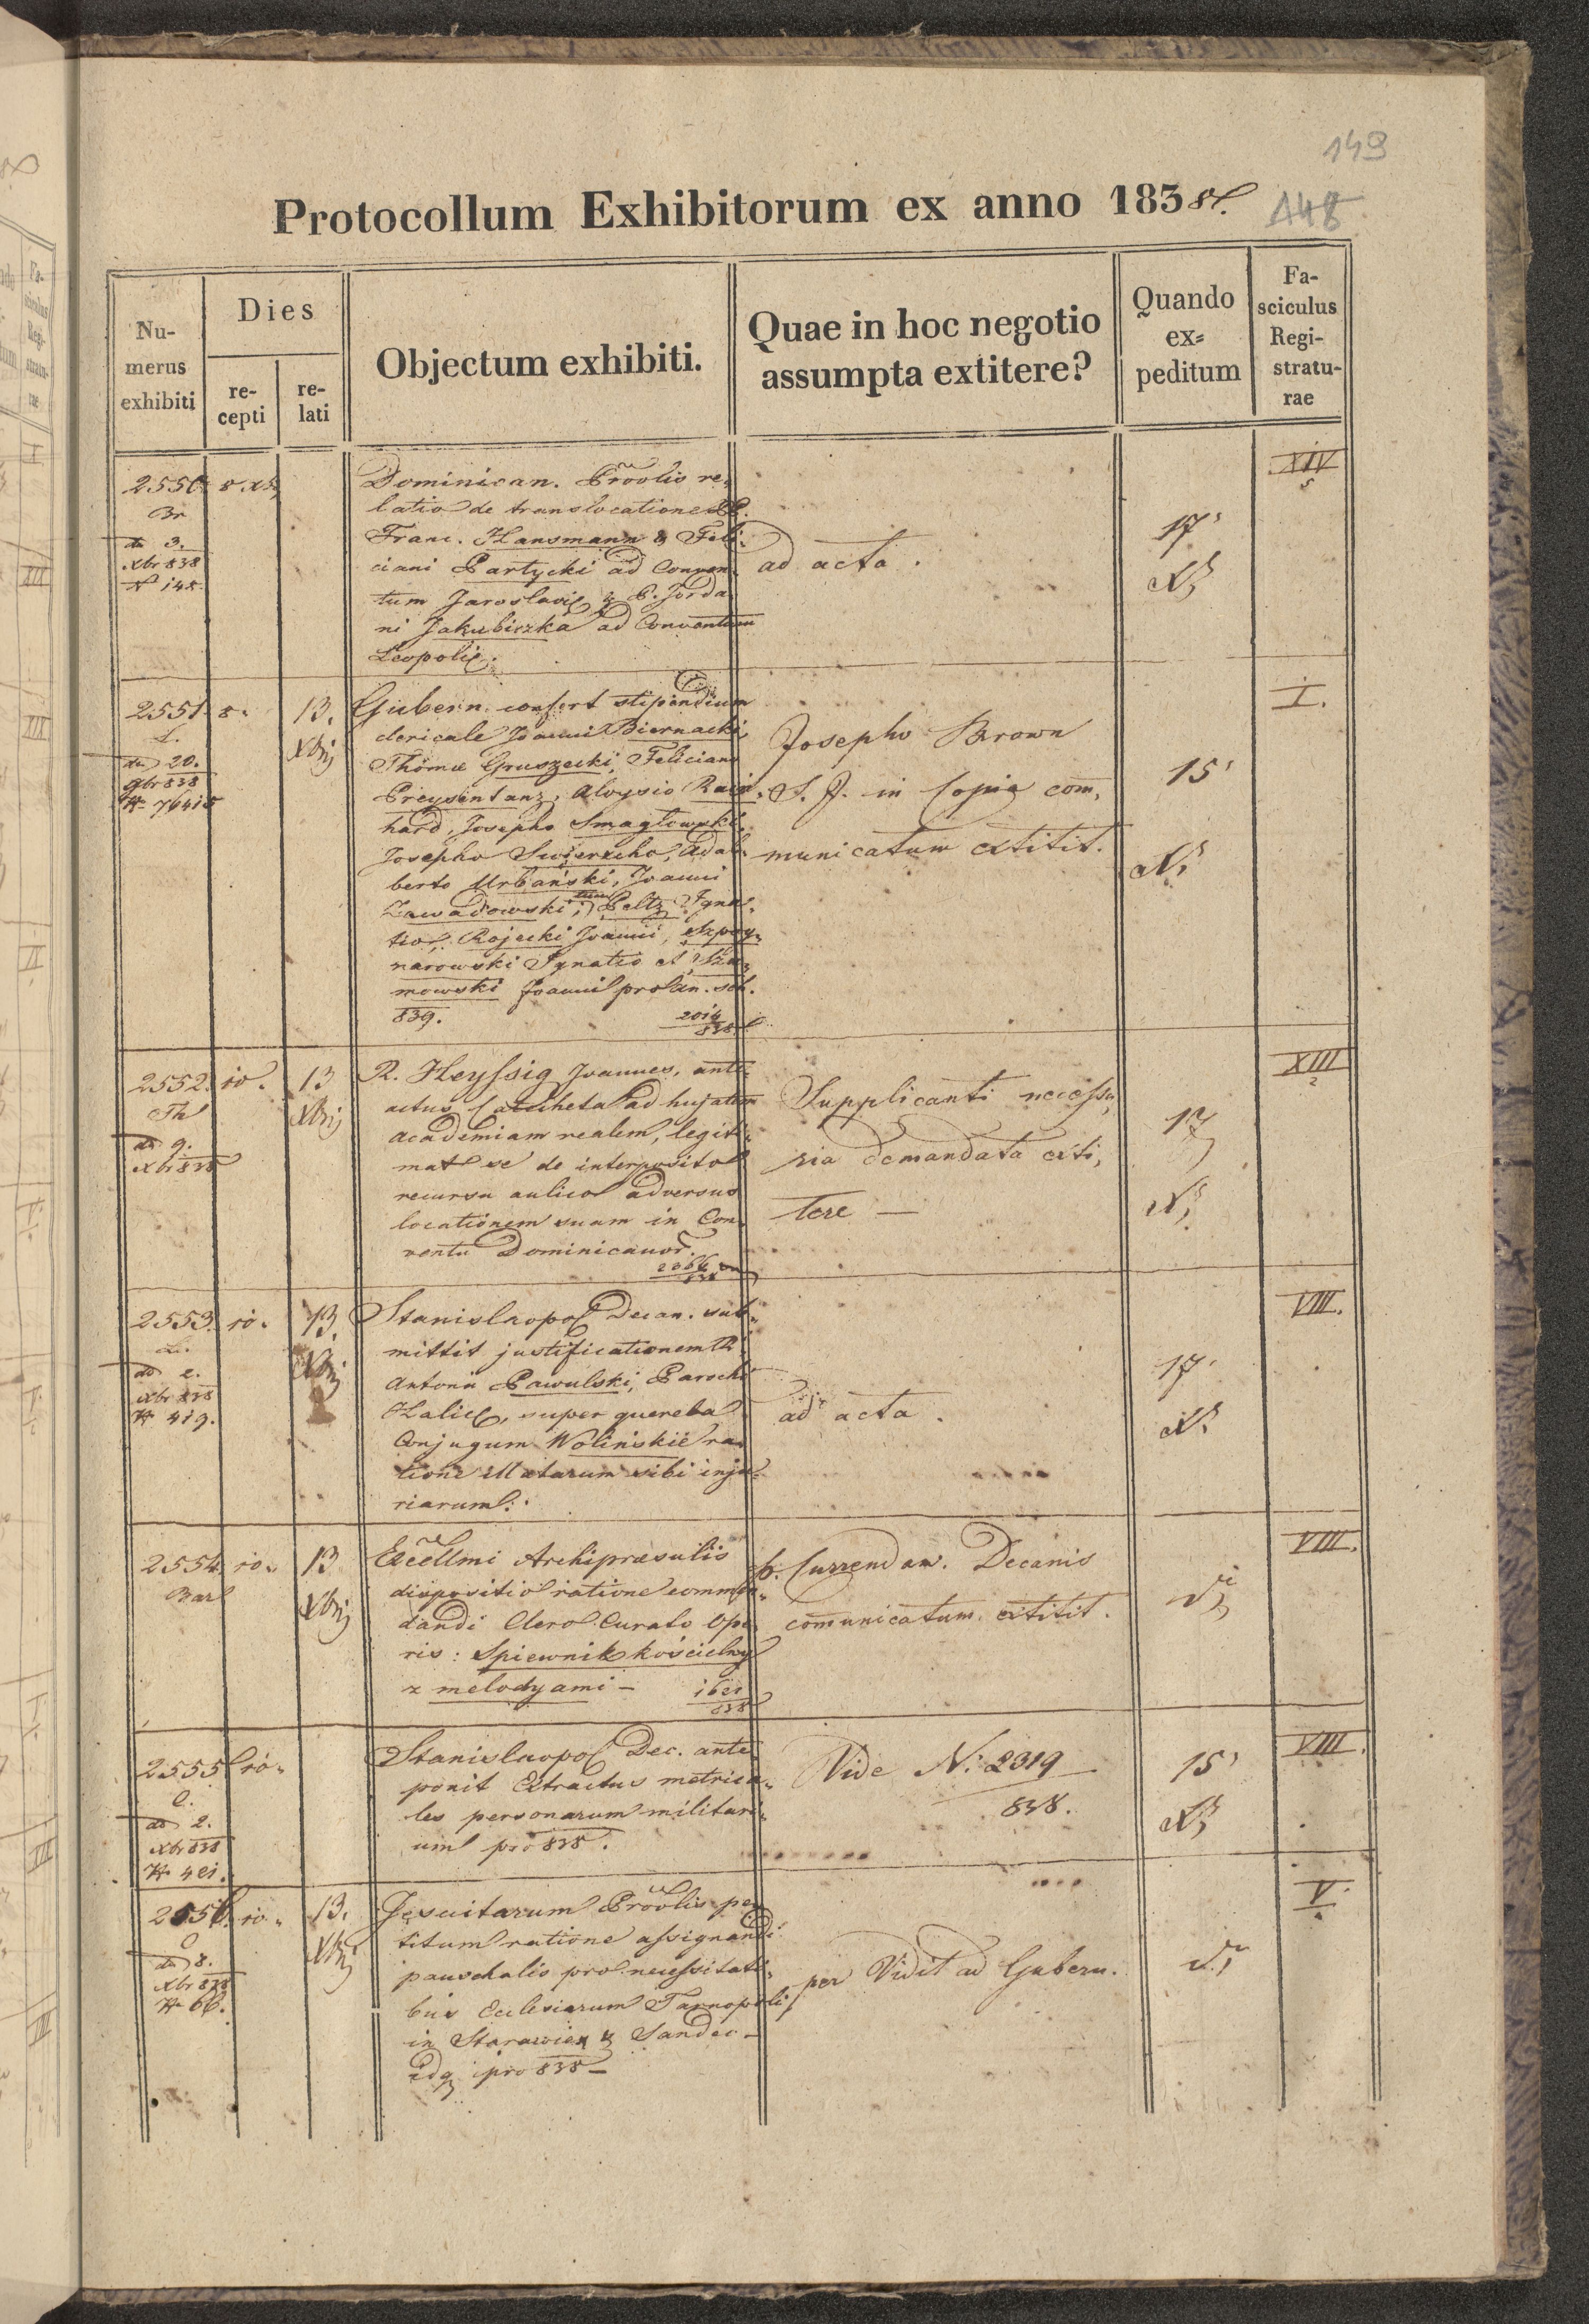 149
148
Protocollum Exhibitorum ex anno 1838.
Numerus exhibiti
Dies
recepti
relati
Objectum exhibiti.
Quae in hoc negotio assumpta extitere?
Quando expeditum
Fasciculus Registraturae
2550. 8 Xb
Br
do 3.
Xbr 838
N 145.
Dominican. Provlis re-
latio de translocatione PP.
Franc. Hansmann & Feli-
ciani Partycki ad Conven-
tum Jaroslavię & P. Jorda-
ni Jakubiszka ad Conventum
Leopolię.
ad acta.
17
Xb
XIV
5
2551. 8. 13.
Xbrj
L.
do 20.
9br 838
N 76415
Gubern. confert stipendium
clericale Joanni Biernacki,
Thomæ Gruszecki, Feliciano
Preysentanz, Aloysio Rain-
hard, Josepho Smagłowski,
Josepho Swierzcho, Adal-
berto Urbański, Joanni
Zawadowski, Peltz Igna-
tio, Rojecki Joanni, Szpoy-
narowski Ignatio et Sza-
mowski Joanni pro an. sch.
839.
2014
838
Josepho Brown
S. J. in Copia com,
municatum extitit.
15
Xb
I.
2552. 10. 13
Xbrj
Th
do 9.
Xbr 838
R. Heyssig Joannes, ante-
actus Catecheta ad hujatem
academiam realem, legiti-
mat se de interposito
recursu aulico adversus
locationem suam in Con-
ventu Dominicanor.
2066
838
Supplicanti necessa,
ria demandata exti,
tere —
17
Xb
XIII
2
2553. 10. 13.
Xbrj
L.
do 2.
Xbr 838
N 419.
Stanislaopol Decan. sub-
mittit justificationem R.
Antonii Pawulski, Parochi
Halic, super querela
Conjugum Woliński ra-
tione illatarum sibi inju-
riarum.
ad acta.
17
Xb
VIII.
2554. 10. 13
Xbrj
Bar
Excellmi Archipraesulis
dispositio ratione commen-
dandi Clero Curato Ope-
ris: Spiewnik kościelny
z melodyami —
838
p. Currendam. Decanis
comunicatum extitit.
VIII.
2555 10.
C.
do 2.
Xbr 838
N 421.
Stanislaopol Dec. ante
ponit Extractus metrica-
les personarum militari-
um pro 838.
Vide N: 2319
838.
15
Xb
VIII.
2556. 10. 13.
Xbrj
do 8.
Xbr 838
N 66.
Jesuitarum Provlis pe-
titum ratione assignandi
pauschalis pro necessitati-
bus Ecclesiarum Tarnopoli,
in Starawies & Sandec-
pro 838 —
per Vidit ad Gubern.
V.